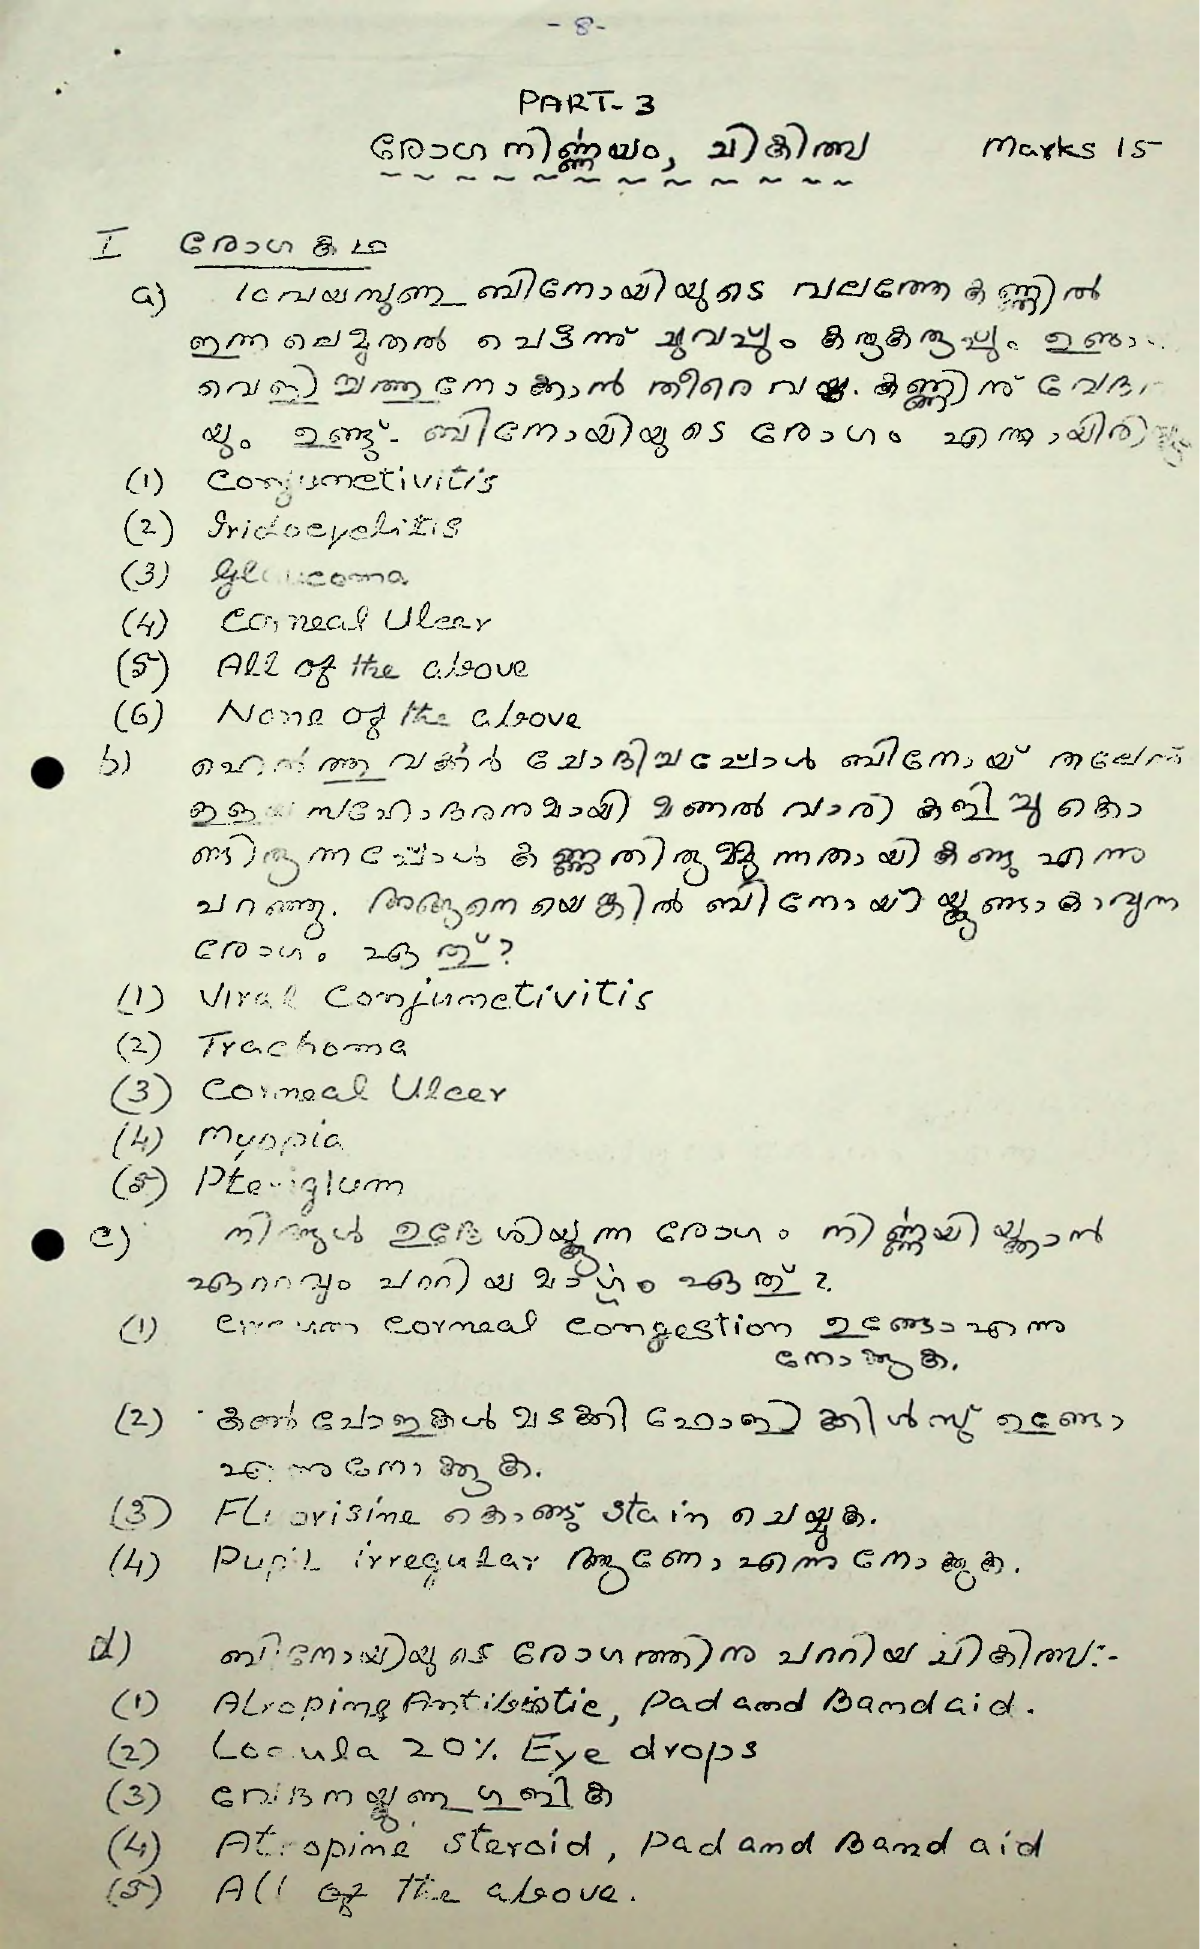 - 8 -
PART-3
രോഗനിർണ്ണയം, ചികിത്സ Marks 15
I രോഗകഥ
a) 10 വയസുള്ള ബിനോയിയുടെ വലത്തേ കണ്ണിൽ
ഇന്നലെമുതൽ പെട്ടന്ന് ചുവപ്പും കരുകരുപ്പും
വെളിച്ചത്തുനോക്കാൻ തീരെ വയ്യ. കണ്ണിന്
യും ഉണ്ട്. ബിനോയിയുടെ രോഗം
(1) Conjunctivitis
(2) Iridocyclitis
(3) Glaucoma
(4) Corneal Ulcer
(5) All of the above
(6) None of the above
b) ഹെൽത്തു വർക്കർ ചോദിച്ചപ്പോൾ ബിനോയ്
ഇളയ സഹോദരനുമായി മണൽ വാരി കളിച്ചുകൊ
ണ്ടിരുന്നപ്പോൾ കണ്ണുതിരുമ്മുന്നതായി കണ്ടു എന്നു
പറഞ്ഞു. അങ്ങനെയെങ്കിൽ ബിനോയ്ക്കുണ്ടാകാവുന്ന
രോഗം ഏത്?
(1) Viral Conjunctivitis
(2) Trachoma
(3) Corneal Ulcer
(4) Myopia
(5) Pteriglum
c) നിങ്ങൾ ഉദ്ദേശിയ്ക്കുന്ന രോഗം നിർണ്ണയിയ്ക്കാൻ
ഏററവും പററിയ മാർഗ്ഗം ഏത്?
(1) Circum Corneal Congestion ഉണ്ടോ എന്നു
നോക്കുക.
(2) കൺപോളകൾ മടക്കി ഫോളിക്കിൾസ് ഉണ്ടോ
എന്നുനോക്കുക.
(3) Fluorisine കൊണ്ടു stain ചെയ്യുക.
(4) Pupil irregular ആണോ എന്നു നോക്കുക.
d) ബിനോയിയുടെ രോഗത്തിനു പററിയ ചികിത്സ:-
(1) Atropine, Antibiotic, Pad and Band aid.
(2) Locula 20% Eye drops
(3) വേദനയ്ക്കുള്ള ഗുളിക
(4) Atropine steroid, Pad and Band aid
(5) All of the above.